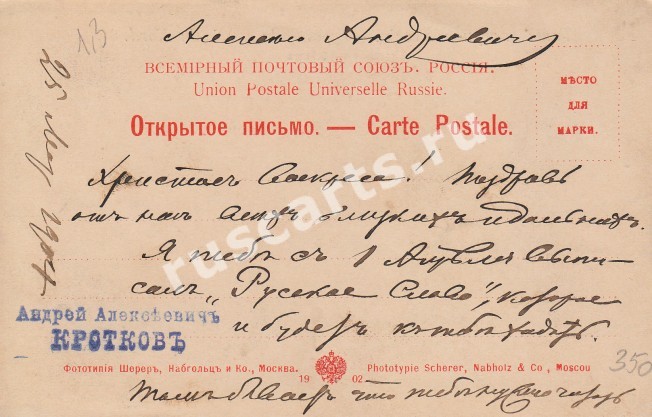 Алексею Андреевичу
13
ВСЕМІРНЫЙ ПОЧТОВЫЙ СОЮЗЪ. РОССІЯ.
Union Postale Universelle Russie.
Открытое письмо. — Carte Postale.
МѢСТО
ДЛЯ
МАРКИ.
25 1904
Христосъ Воскресе! Поздравь
отъ насъ всѣхъ близкихъ и дальнихъ.
Я тебѣ съ 1 Апрѣля выпи-
салъ „Русское Слово", которое
и будетъ къ тебѣ ходить.
Андрей Алексѣевичъ
КРОТКОВЪ
Фототипія Шереръ, Набгольцъ и Ко., Москва.
19 02
Phototypie Scherer, Nabholz & Co, Moscou
350
что
ruscarts.ru